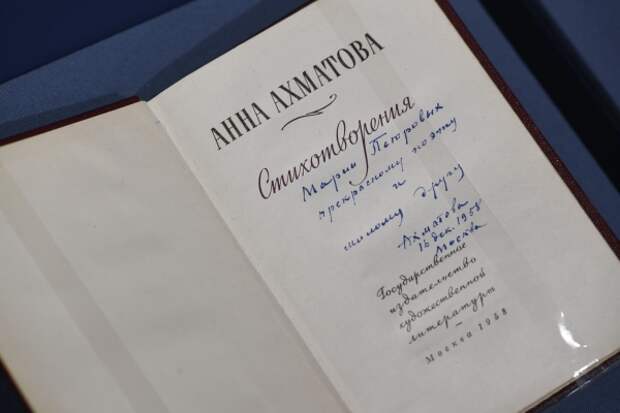 АННА АХМАТОВА
Стихотворения
Марии Петровых
прекрасному поэту
и
милому другу
Ахматова
16 дек. 1958
Москва
Государственное
издательство
художественной
литературы
Москва 1958